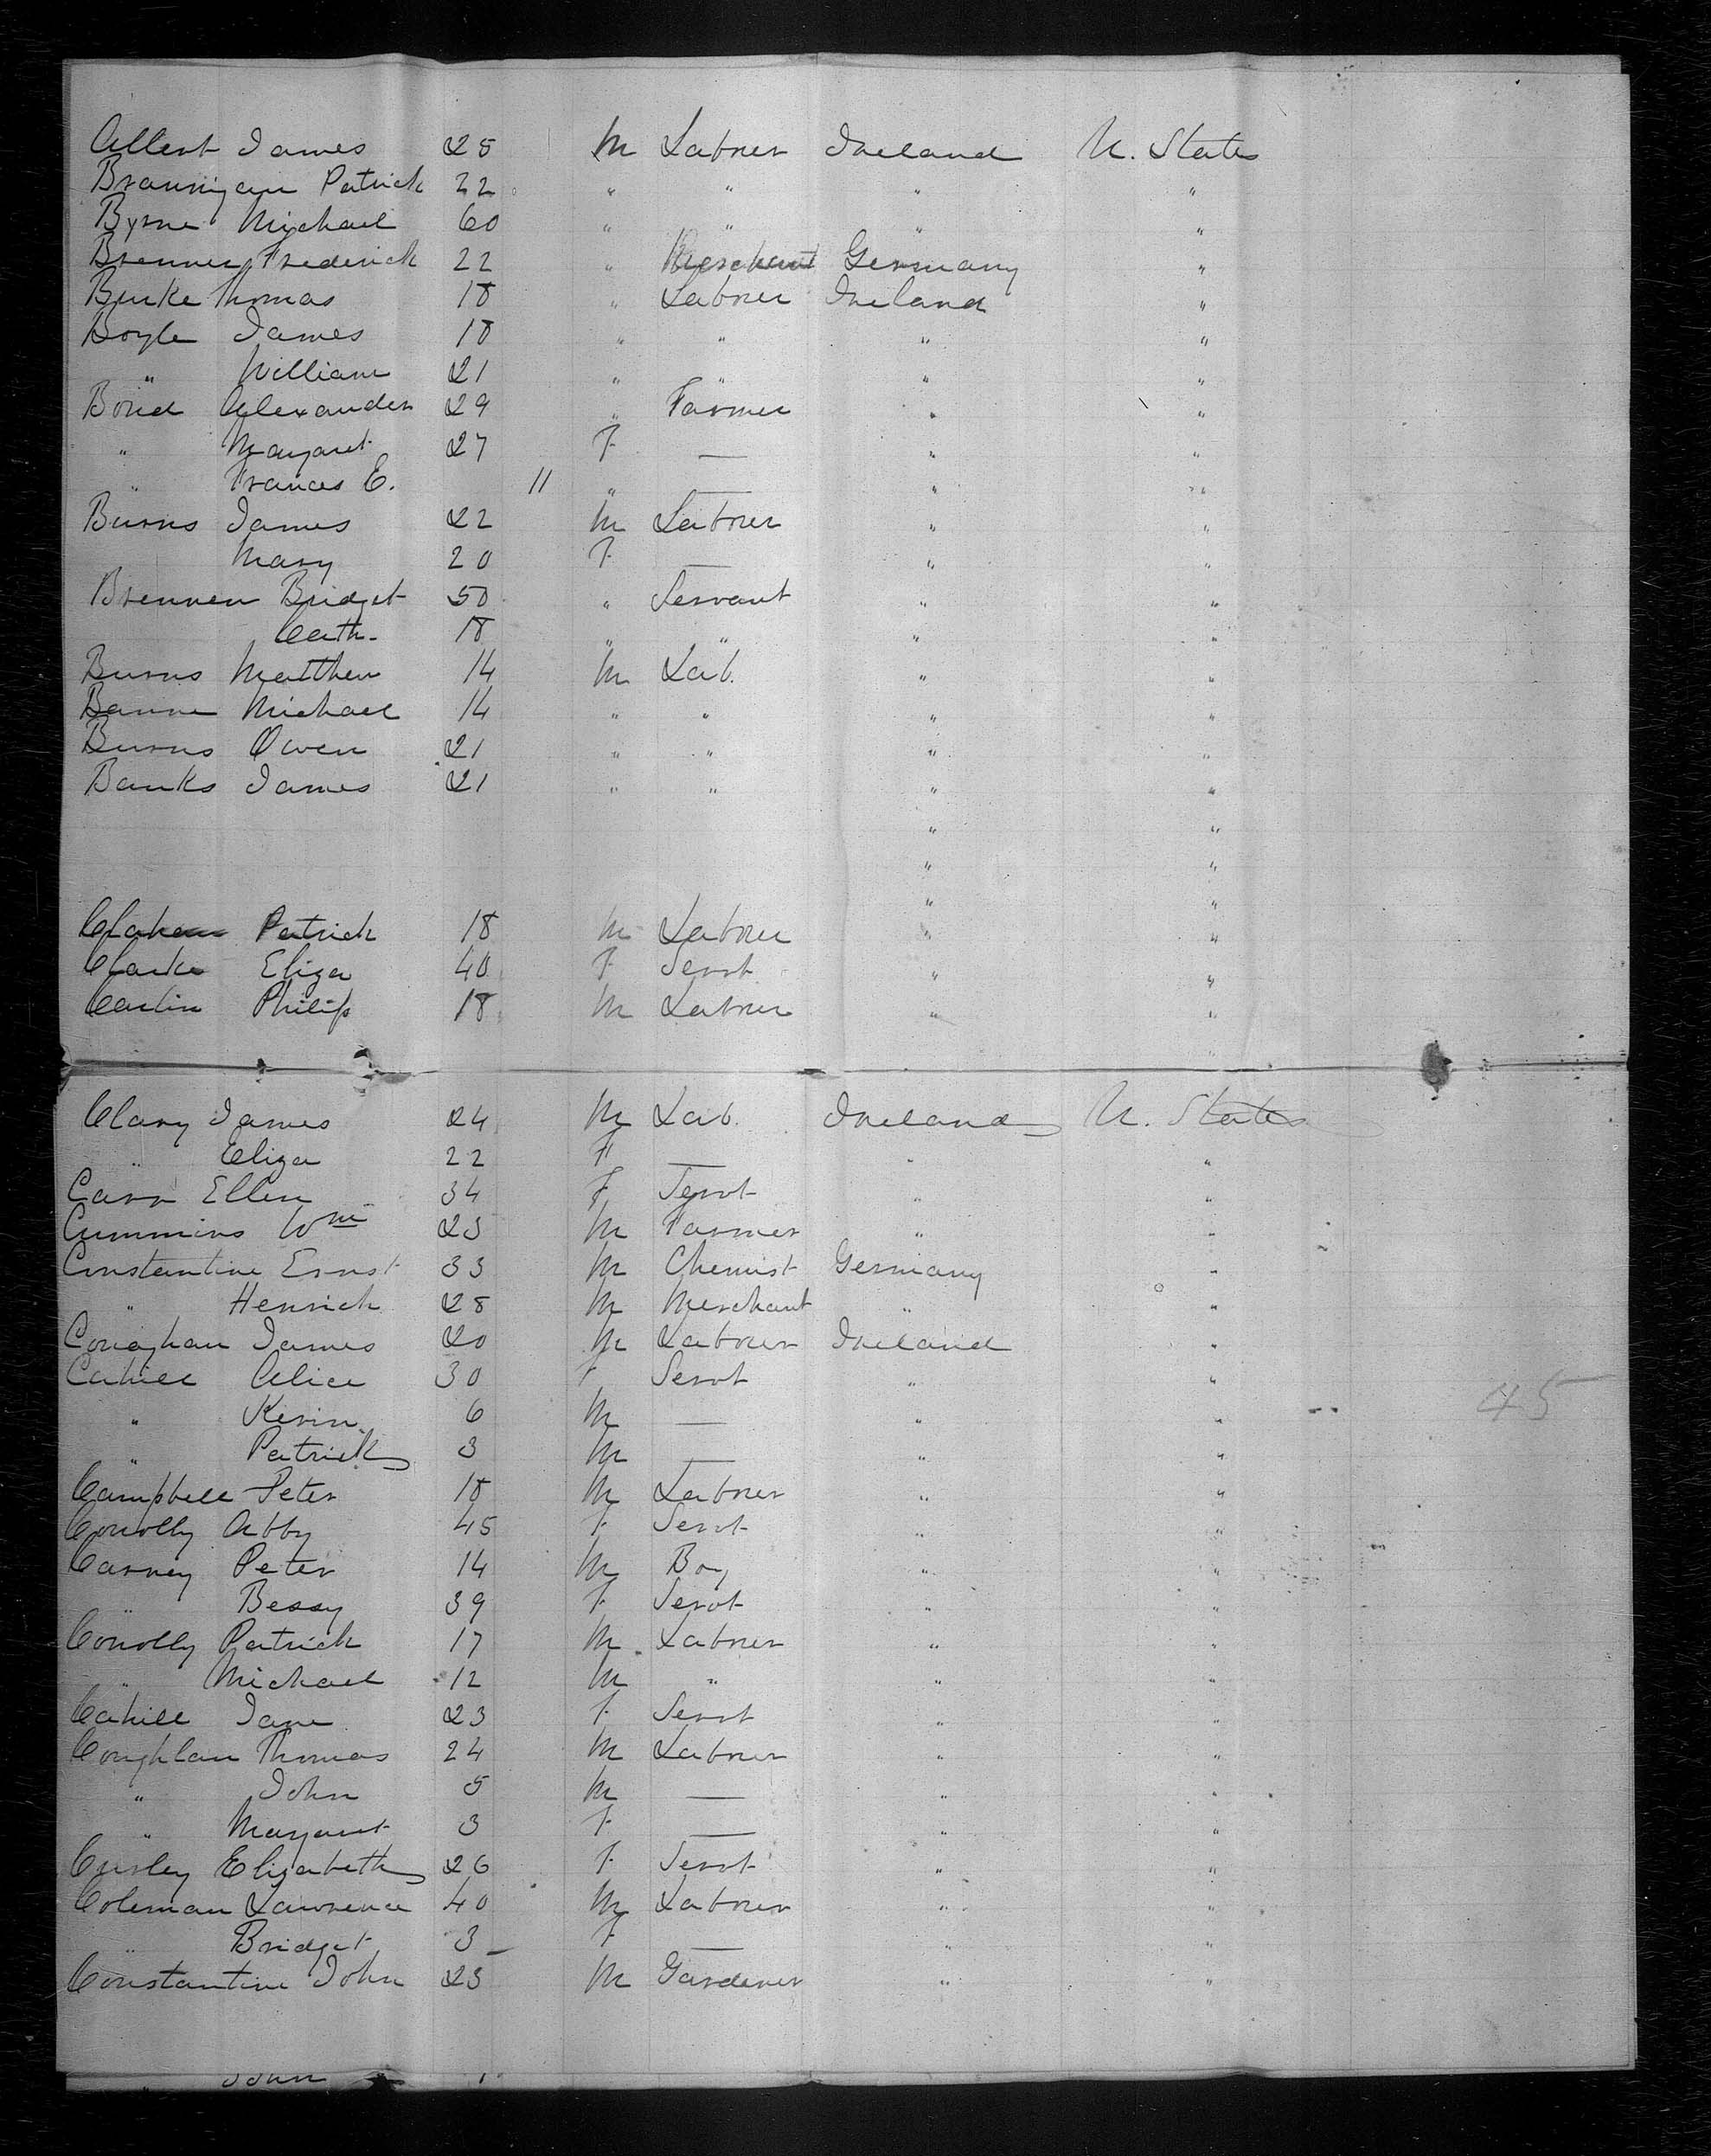 Allent James 28 M Labrer Ireland U. States
Brannigan Patrick 22 " " " "
Byrne Michael 60 " " " "
Brenner Frederick 22 " Merchant Germany "
Burke Thomas 18 " Labrer Ireland "
Boyle James 18 " " " "
" William 21 " " " "
Bond Alexander 29 " Farmer " "
" Margaret 27 F — " "
" Frances E. 11 " — " "
Burns James 22 M Labrer " "
Mary 20 F — " "
Brennen Bridget 50 " Servant " "
Cath. 18 " " " "
Burns Matthew 14 M Lab. " "
Michael 14 " " " "
Burns Owen 21 " " " "
Banks James 21 " " " "
" "
" "
" "
Patrick 18 M Labrer " "
Clarke Eliza 40 F Servt " "
Carlin Philip 18 M Labrer " "
Clary James 24 M Lab. Ireland U. States
" Eliza 22 F — " "
Carr Ellen 34 F Servt " "
Cummins Wm 23 M Farmer " "
Constantine Ernst 33 M Chemist Germany "
" Henrich 28 M Merchant " "
Conaghan James 20 M Labrer Ireland "
Cahill Alice 30 F Servt " "
" Kerin 6 M — " "
45
" Patrick 3 M — " "
Campbell Peter 18 M Labrer " "
Conolly Abby 45 F Servt " "
Carney Peter 14 M Boy " "
" Bessy 39 F Servt " "
Conolly Patrick 17 M Labrer " "
" Michael 12 M " " "
Cahill Jane 23 F Servt " "
Coughlan Thomas 24 M Labrer " "
" John 5 M — " "
" Margaret 3 F — " "
Curley Elizabeth 26 F Servt " "
Coleman Lawrence 40 M Labrer " "
" Bridget 3 F — " "
Constantine John 23 M Gardener " "
" John